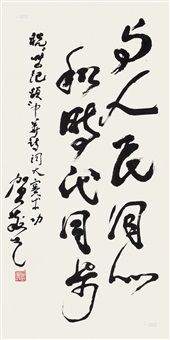 与人民同心
和時代同步
祝世纪颂中华诗词大赛成功
贺敬之